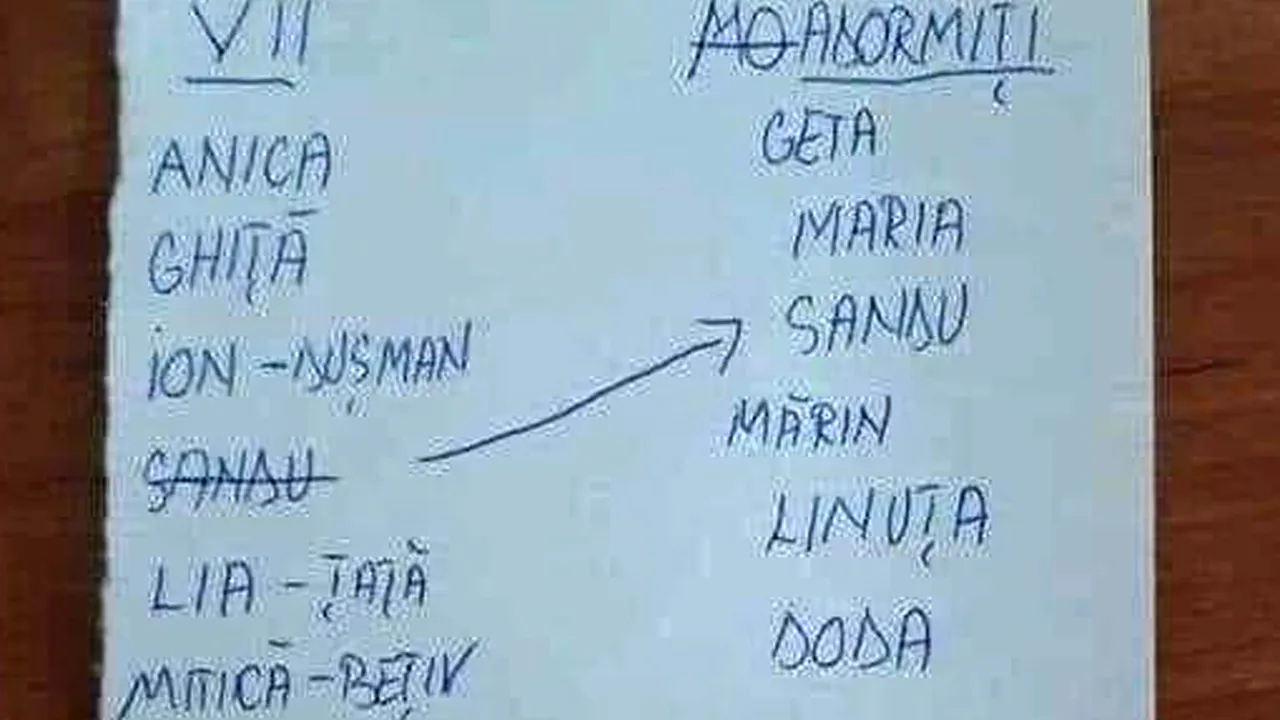 VII
ANICA
GHIȚĂ
ION - DUȘMAN
SANDU
LIA - ȚAȚĂ
MITICĂ - BEȚIV
MOADORMIȚI
GETA
MARIA
SANDU
MĂRIN
LINUȚA
DODA